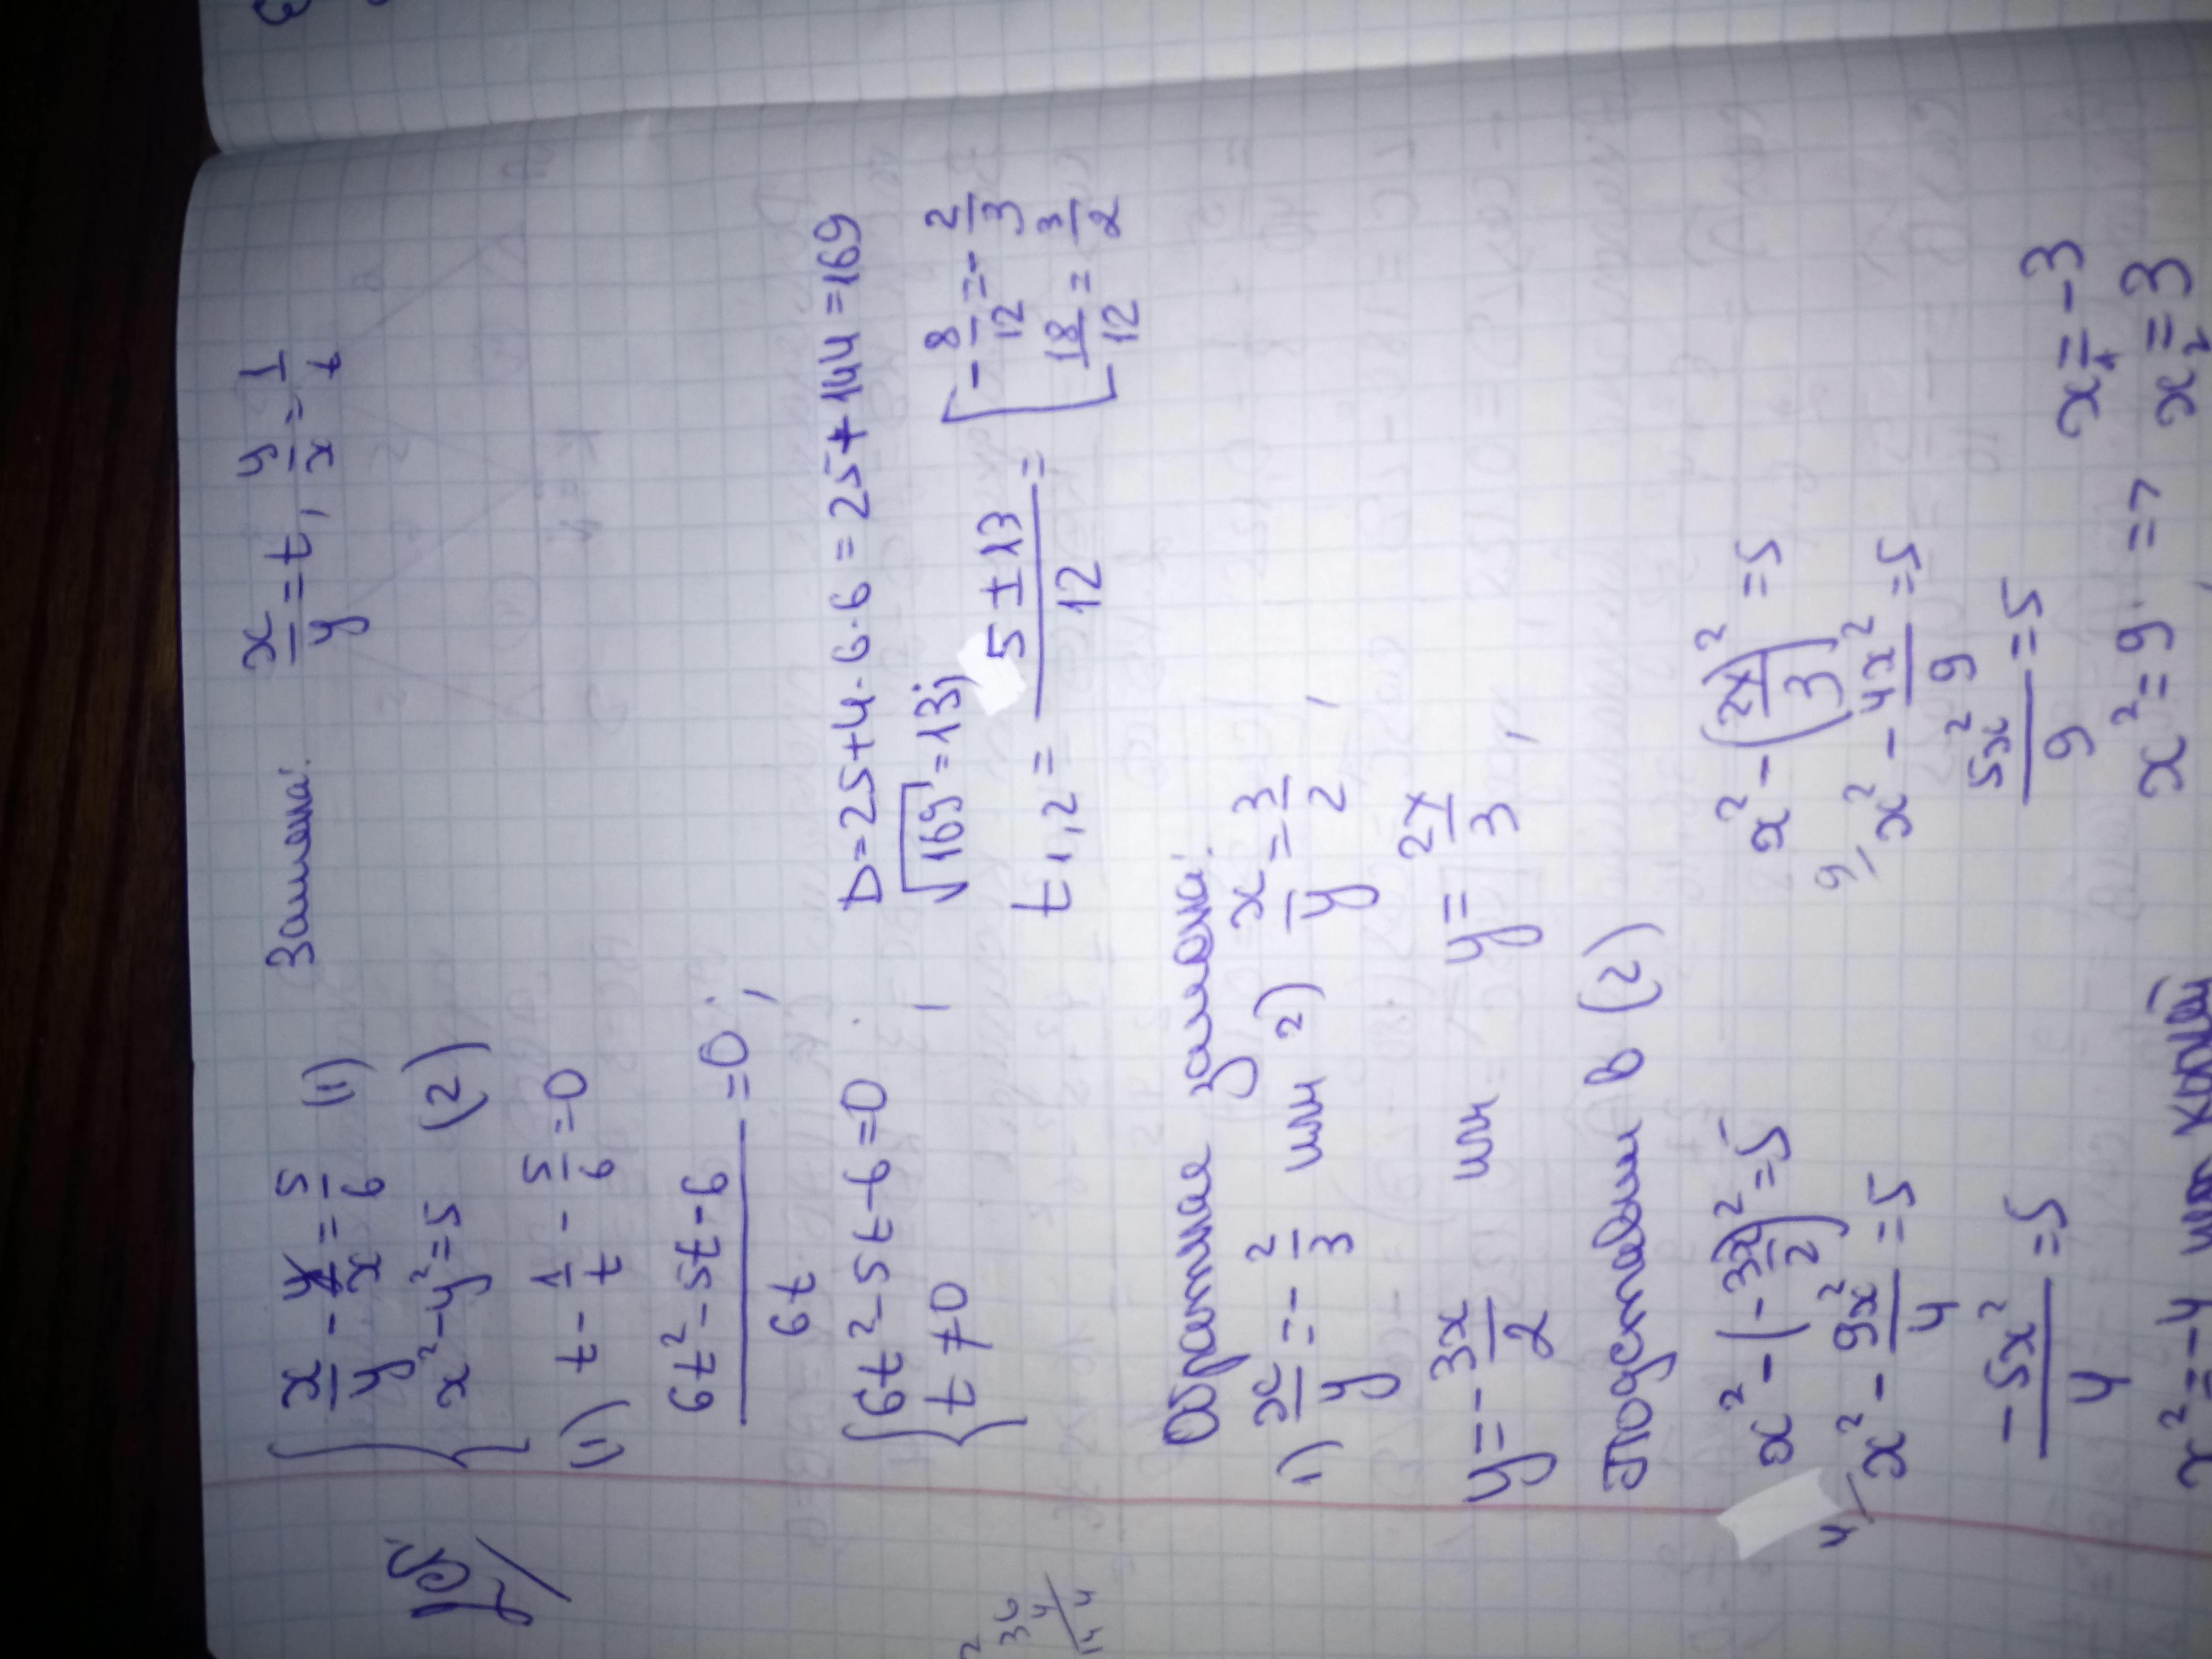 { x/y - y/x = 5/6 (1) Замена: x/y = t, y/x = 1/t
x² - y² = 5 (2)
(1) t - 1/t - 5/6 = 0
(6t² - 5t - 6)/6t = 0;
{ 6t² - 5t - 6 = 0; D = 25 + 4·6·6 = 25 + 144 = 169
t ≠ 0 √169 = 13;
t1,2 = (5 ± 13)/12 = [ -8/12 = -2/3
18/12 = 3/2
36
4
144
Обратная замена:
1) x/y = -2/3 или 2) x/y = 3/2,
y = -3x/2 или y = 2x/3,
подставим в (2)
x² - (-3x/2)² = 5 x² - (2x/3)² = 5
4/ x² - 9x²/4 = 5 9/ x² - 4x²/9 = 5
-5x²/4 = 5 5x²/9 = 5
x² = -4 x² = 9. => x₁ = -3
x₂ = 3